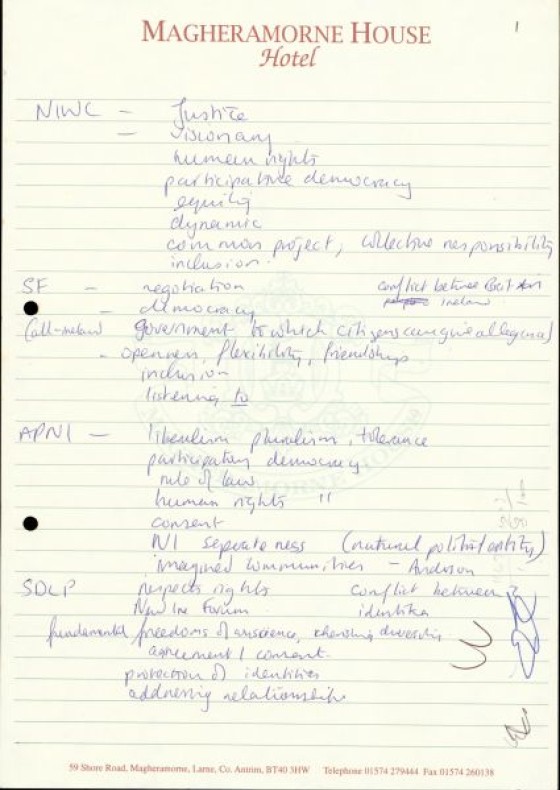 MAGHERAMORNE HOUSE
Hotel
1
NIWC - Justice
- visionary
human rights
participative democracy
equity
dynamic
common project, collective responsibility
inclusion.
SF - negotiation conflict between Brit +
Ireland
- democracy
(all-Ireland government to which citizens can give allegiance)
- openness, flexibility, friendships
inclusion
listening to
APNI - liberalism pluralism, tolerance
participatory democracy
rule of law
human rights "
consent
NI separateness (natural political entity)
imagined communities - Anderson
SDLP respects rights conflict between 2
New Ire Forum. identities
fundamental freedoms of conscience, cherishing diversity
agreement / consent.
protection of identities
addressing relationships
59 Shore Road, Magheramorne, Larne, Co. Antrim, BT40 3HW Telephone 01574 279444 Fax 01574 260138